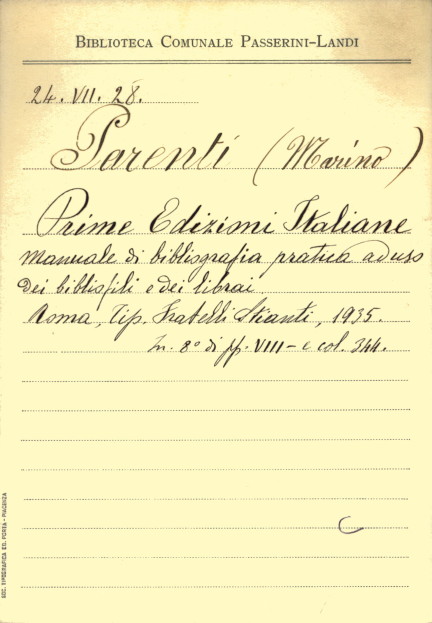 BIBLIOTECA COMUNALE PASSERINI-LANDI
24. VII. 28.
Parenti (Marino)
Prime Edizioni Italiane
Manuale di bibliografia pratica ad uso
dei bibliofili e dei librai
Roma, Tip. Fratelli Stianti, 1935.
In. 8° di pp. VIII - e col. 344.
SOC. TIPOGRAFICA ED. PORTA - PIACENZA